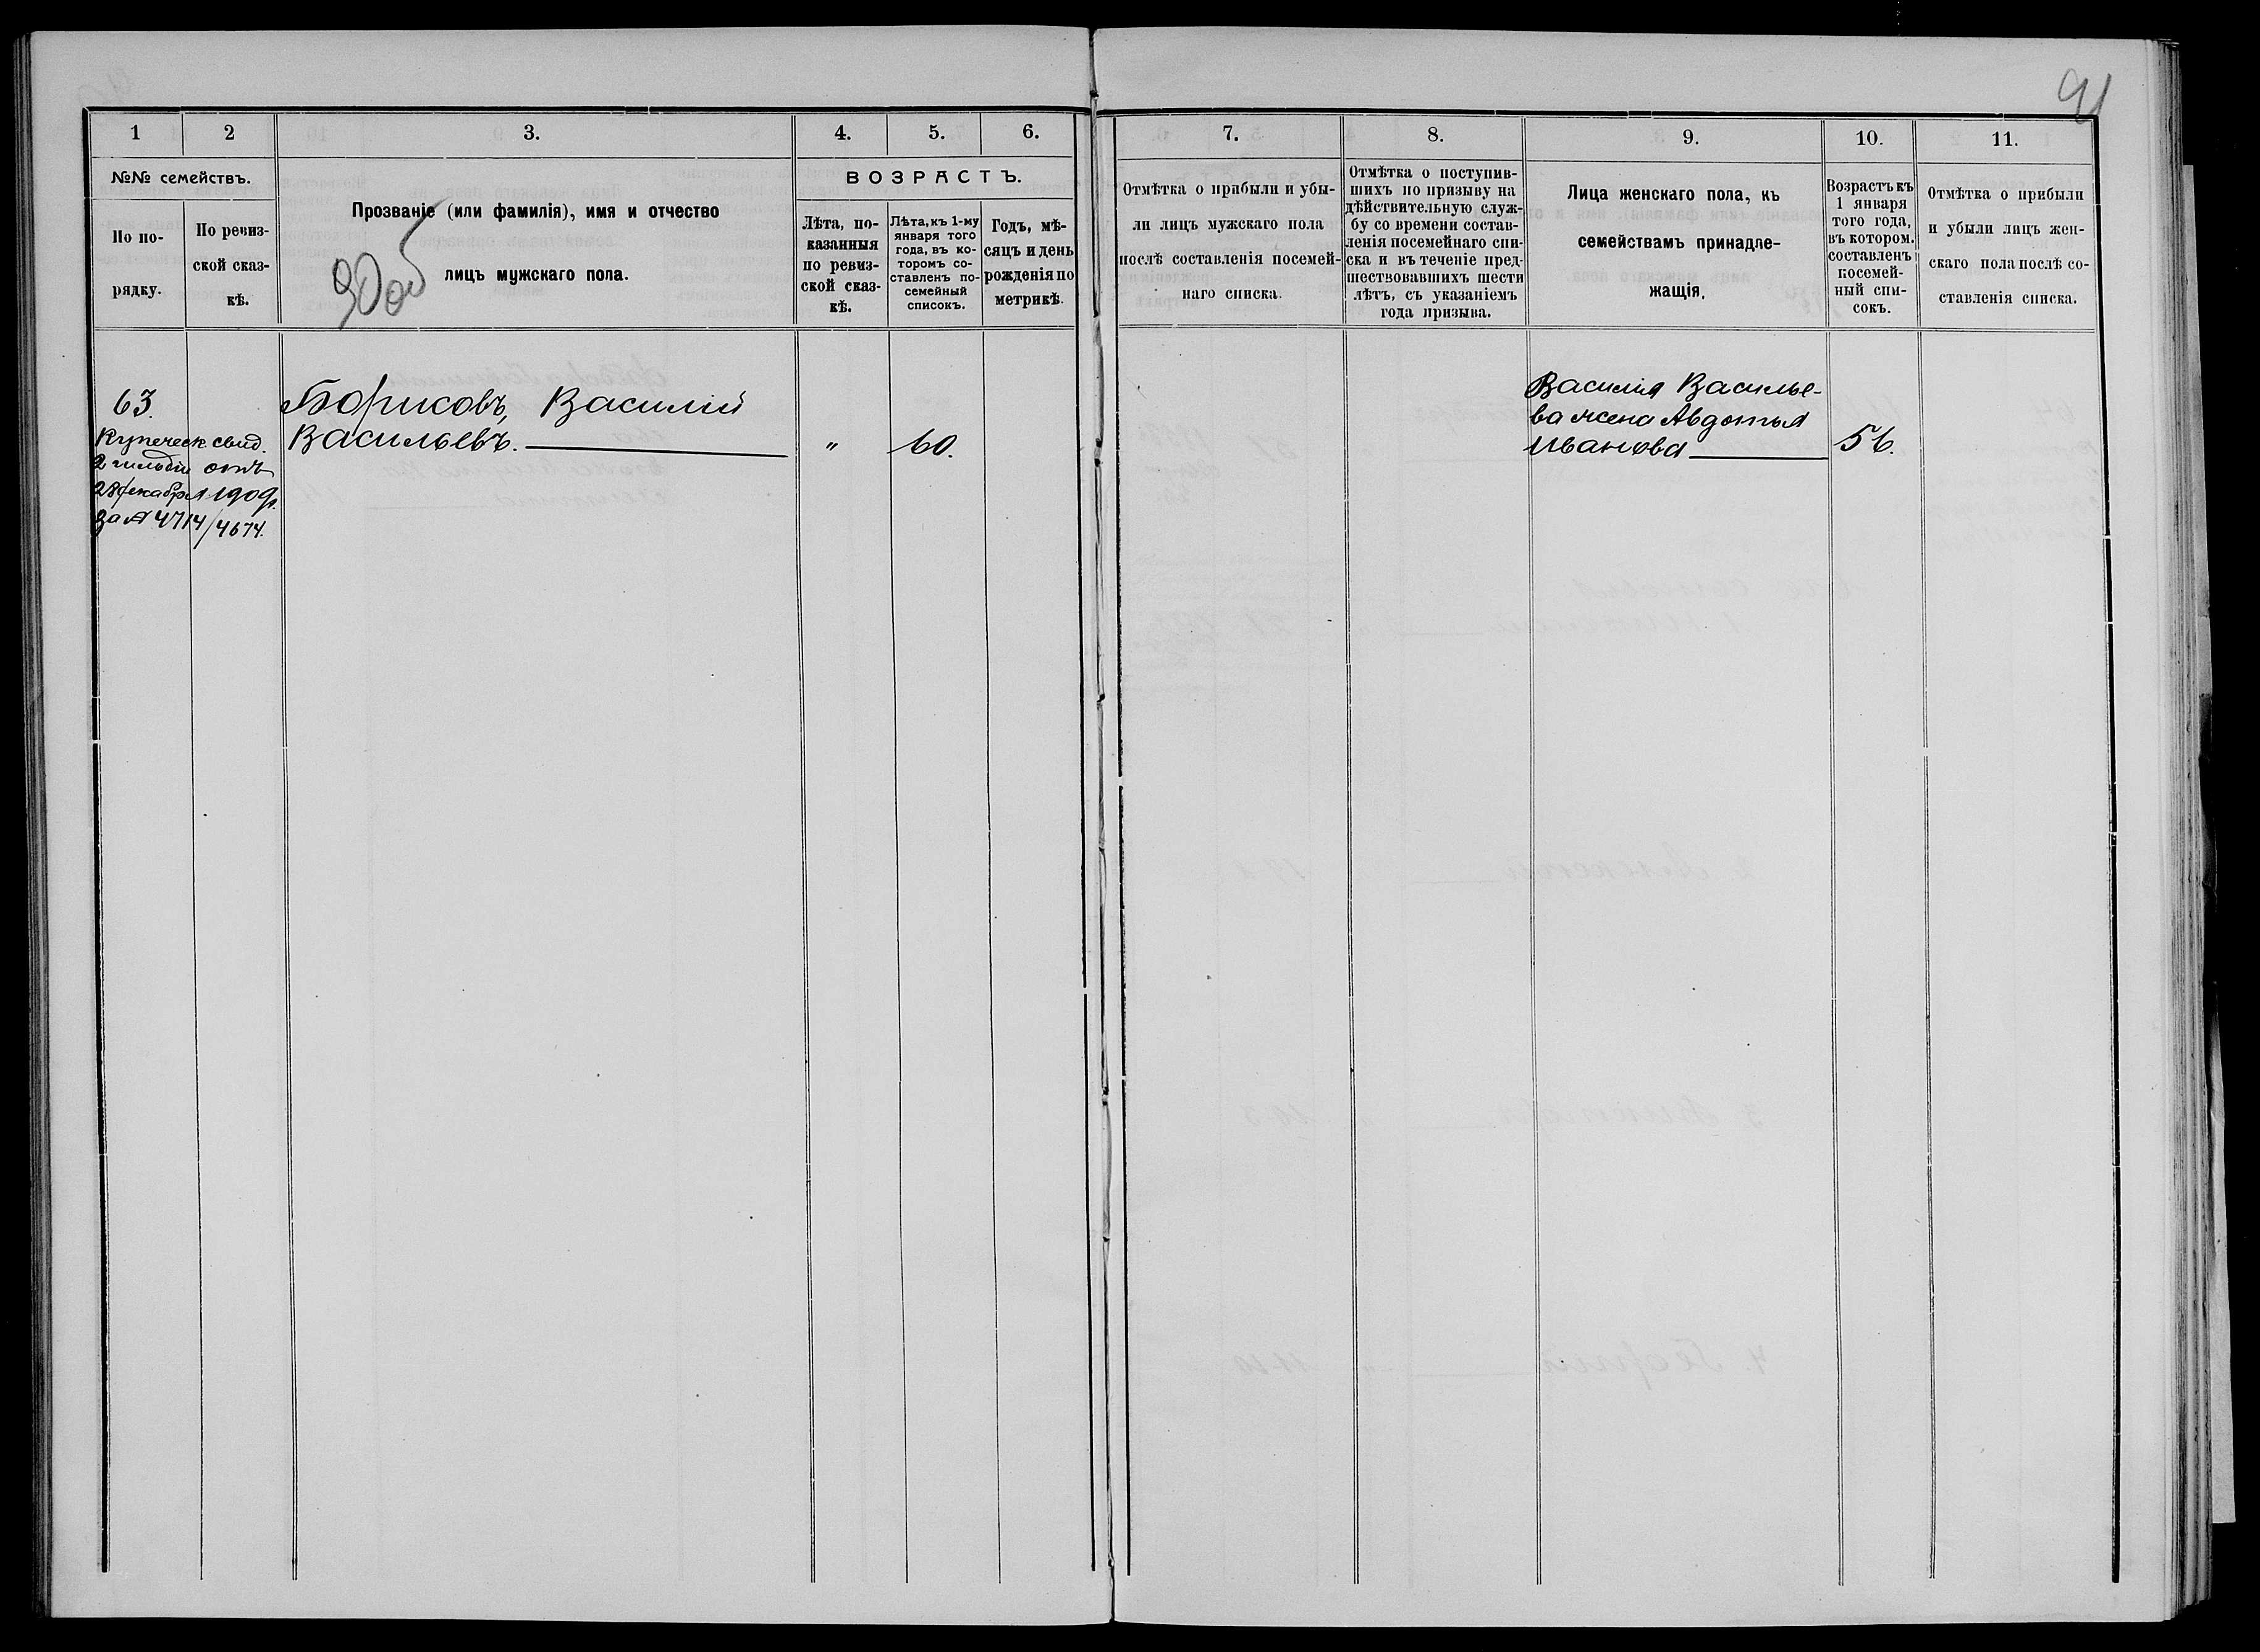 91
1
2
3.
4.
5.
6.
№№ семействъ.
По по-
рядку.
По ревиз-
ской сказ-
кѣ.
Прозваніе (или фамилія), имя и отчество
лицъ мужскаго пола.
ВОЗРАСТЪ.
Лѣта, по-
казанныя
по ревиз-
ской сказ-
кѣ.
Лѣта, къ 1-му
января того
года, въ ко-
торомъ со-
ставленъ по-
семейный
списокъ.
Годъ, мѣ-
сяцъ и день
рожденія по
метрикѣ.
63.
Купеческ. свид.
2 гильдіи отъ
28 декабря 1909г.
за № 4714/4674.
Борисовъ, Василій
Васильевъ.
"
60.
7.
8.
9.
10.
11.
Отмѣтка о прибыли и убы-
ли лицъ мужскаго пола
послѣ составленія посемей-
наго списка.
Отмѣтка о поступив-
шихъ по призыву на
дѣйствительную служ-
бу со времени состав-
ленія посемейнаго спи-
ска и въ теченіе пред-
шествовавшихъ шести
лѣтъ, съ указаніемъ
года призыва.
Лица женскаго пола, къ
семействамъ принадле-
жащія.
Возрастъ къ
1 января
того года,
въ котором.
составленъ
посемей-
ный спи-
сокъ.
Отмѣтка о прибыли
и убыли лицъ жен-
скаго пола послѣ со-
ставленія списка.
Василія Василье-
ва жена Авдотья
Иванова
56.